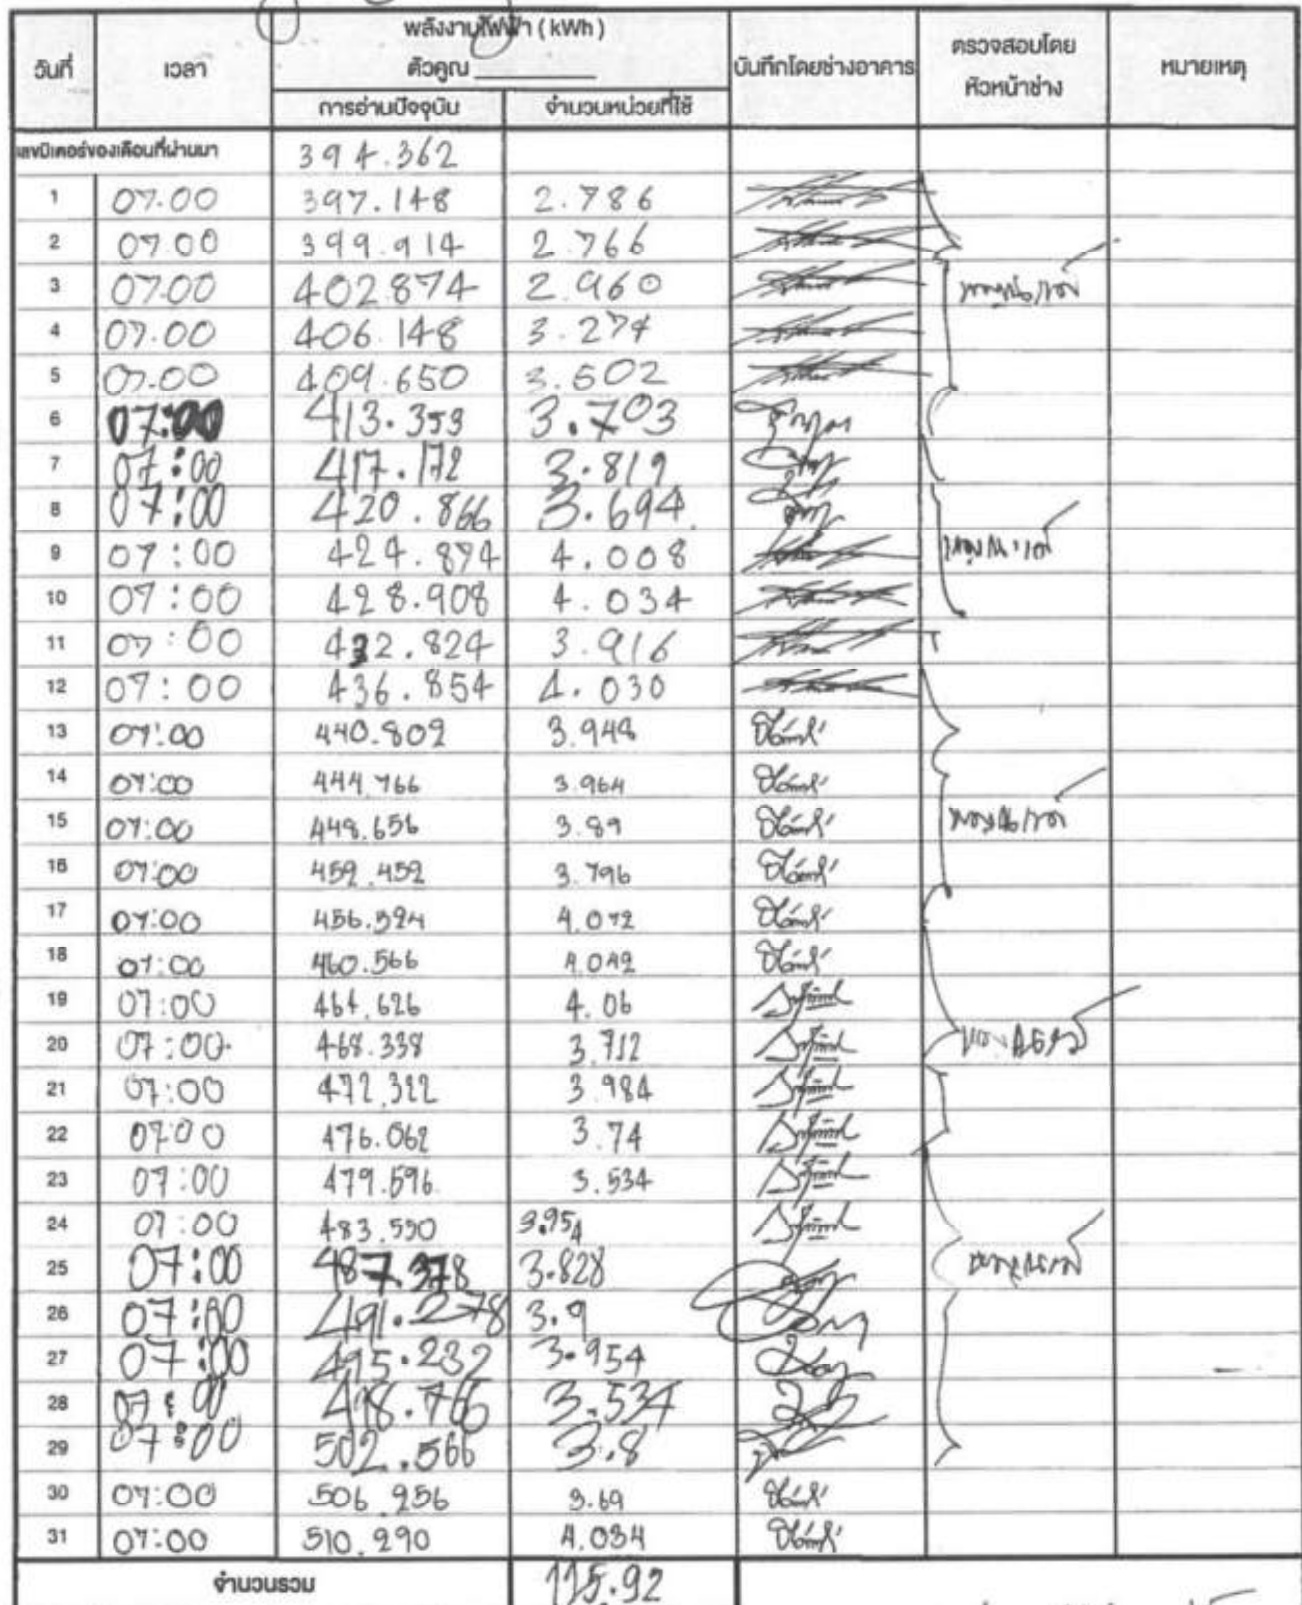 พลังงานไฟฟ้า ( kWh )
วันที่ เวลา ตัวคูณ บันทึกโดยช่างอาคาร ตรวจสอบโดย หมายเหตุ
หัวหน้าช่าง
การอ่านปัจจุบัน จำนวนหน่วยที่ใช้
เลขมิเตอร์ของเดือนที่ผ่านมา 394.362
1 07.00 397.148 2.786
2 07.00 399.914 2.766
3 07.00 402.874 2.960
4 07.00 406.148 3.274
5 07.00 409.650 3.502
6 07:00 413.353 3.703
7 07:00 417.172 3.819
8 07:00 420.866 3.694
9 07:00 424.874 4.008
10 07:00 428.908 4.034
11 07:00 432.824 3.916
12 07:00 436.854 4.030
13 07:00 440.802 3.948
14 07:00 444.766 3.964
15 07:00 448.656 3.89
16 07:00 452.452 3.796
17 07:00 456.524 4.072
18 07:00 460.566 4.042
19 07:00 464.626 4.06
20 07:00 468.338 3.712
21 07:00 472.322 3.984
22 07:00 476.062 3.74
23 07:00 479.596 3.534
24 07:00 483.550 3.954
25 07:00 487.378 3.828
26 07:00 491.278 3.9
27 07:00 495.232 3.954
28 07:00 498.766 3.534
29 07:00 502.566 3.8
30 07:00 506.256 3.69
31 07:00 510.290 4.034
จำนวนรวม 115.92